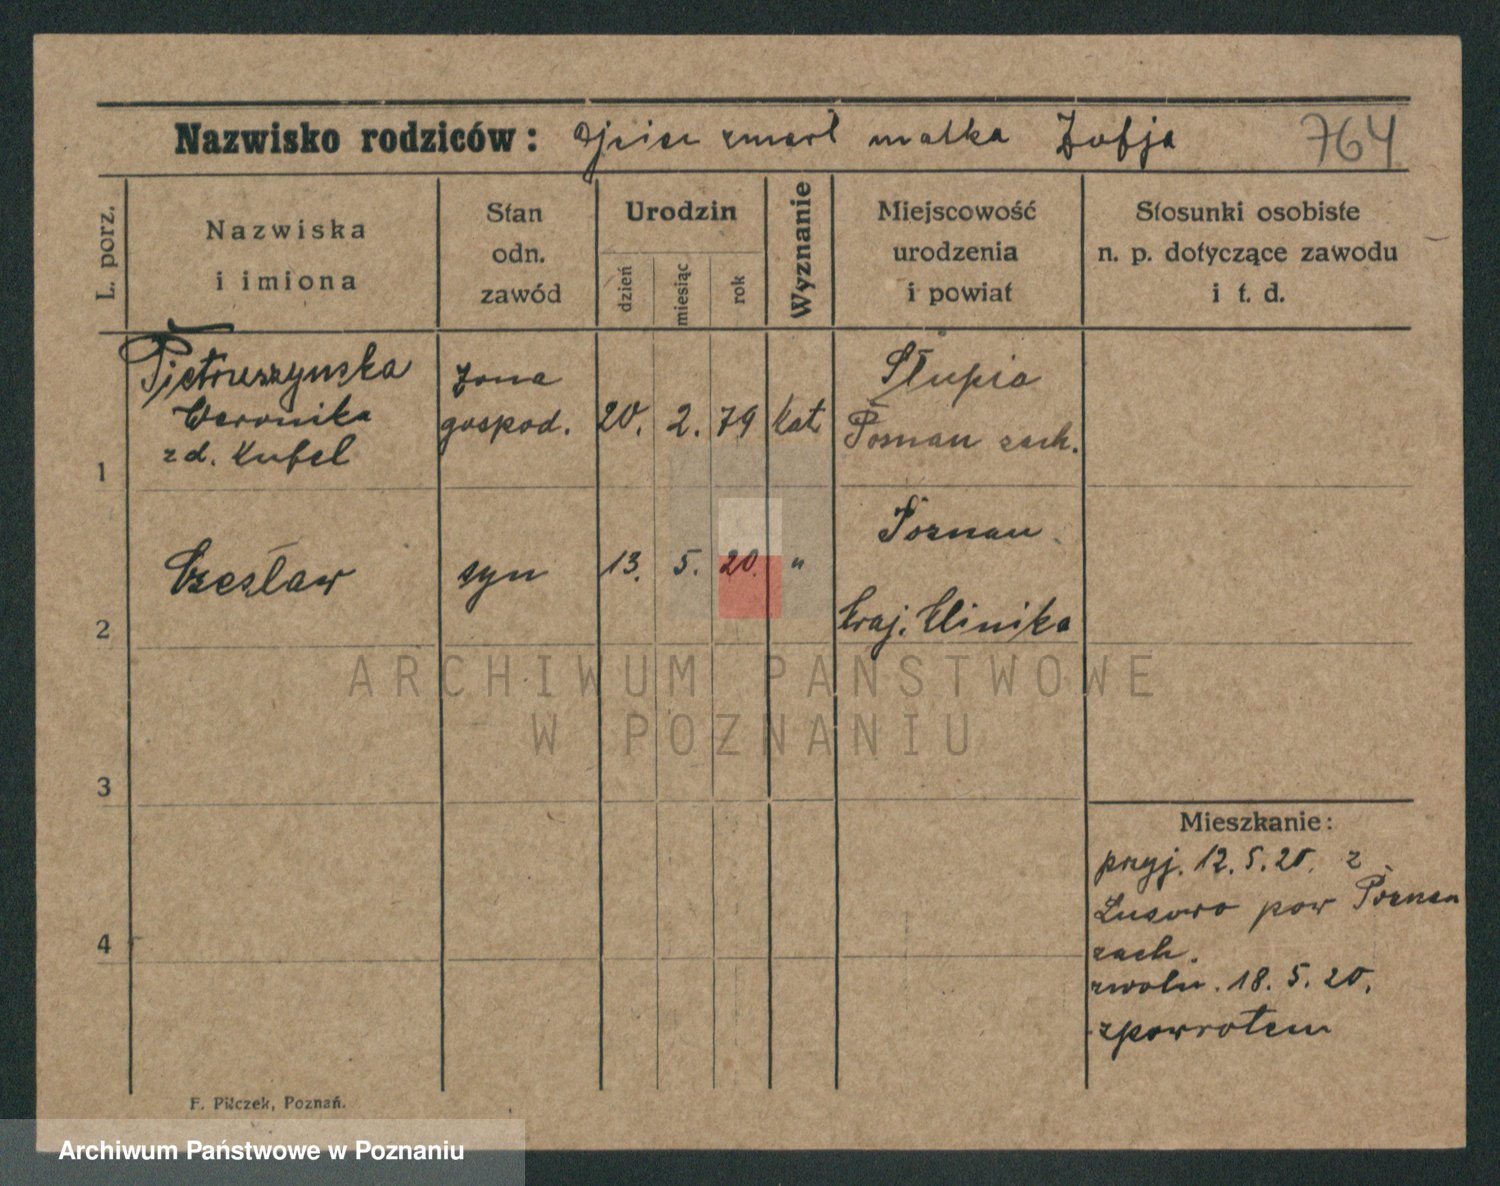 Nazwisko rodziców: Ojciec zmarł matka Zofja 764
L. porz.
Nazwiska
i imiona
Stan
odn.
zawód
Urodzin
dzień
miesiąc
rok
Wyznanie
Miejscowość
urodzenia
i powiat
Stosunki osobiste
n. p. dotyczące zawodu
i t. d.
1
Pietruszynska
Weronika
zd. Kubel
żona
gospod.
20. 2. 79 kat
Słupia
Poznan zach.
2
Czesław
syn
13. 5. 20. "
Poznan
Kraj. Klinika
ARCHIWUM PAŃSTWOWE
W POZNANIU
3
4
Mieszkanie:
przyj. 12. 5. 20. z
Lusowo pow Poznan
zach.
zwoln. 18. 5. 20.
zpowrotem
F. Pilczek, Poznań.
Archiwum Państwowe w Poznaniu